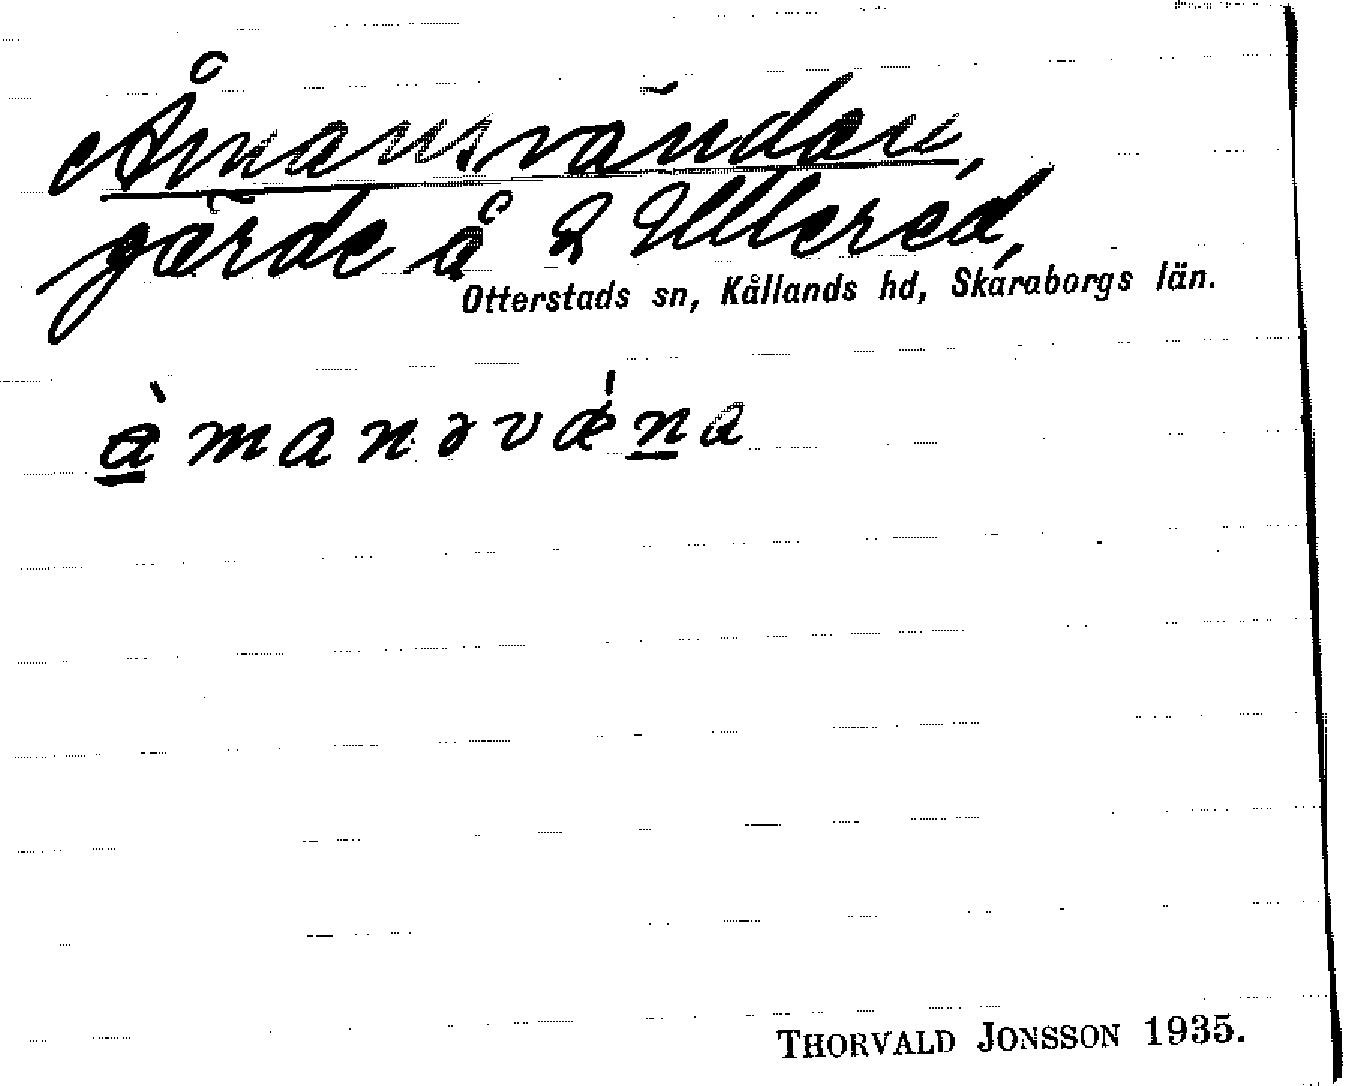 Åmansvändan,
gärde å 2 Ullered,
Otterstads sn, Kållands hd, Skaraborgs län.
àmanəvǽna
THORVALD JONSSON 1935.